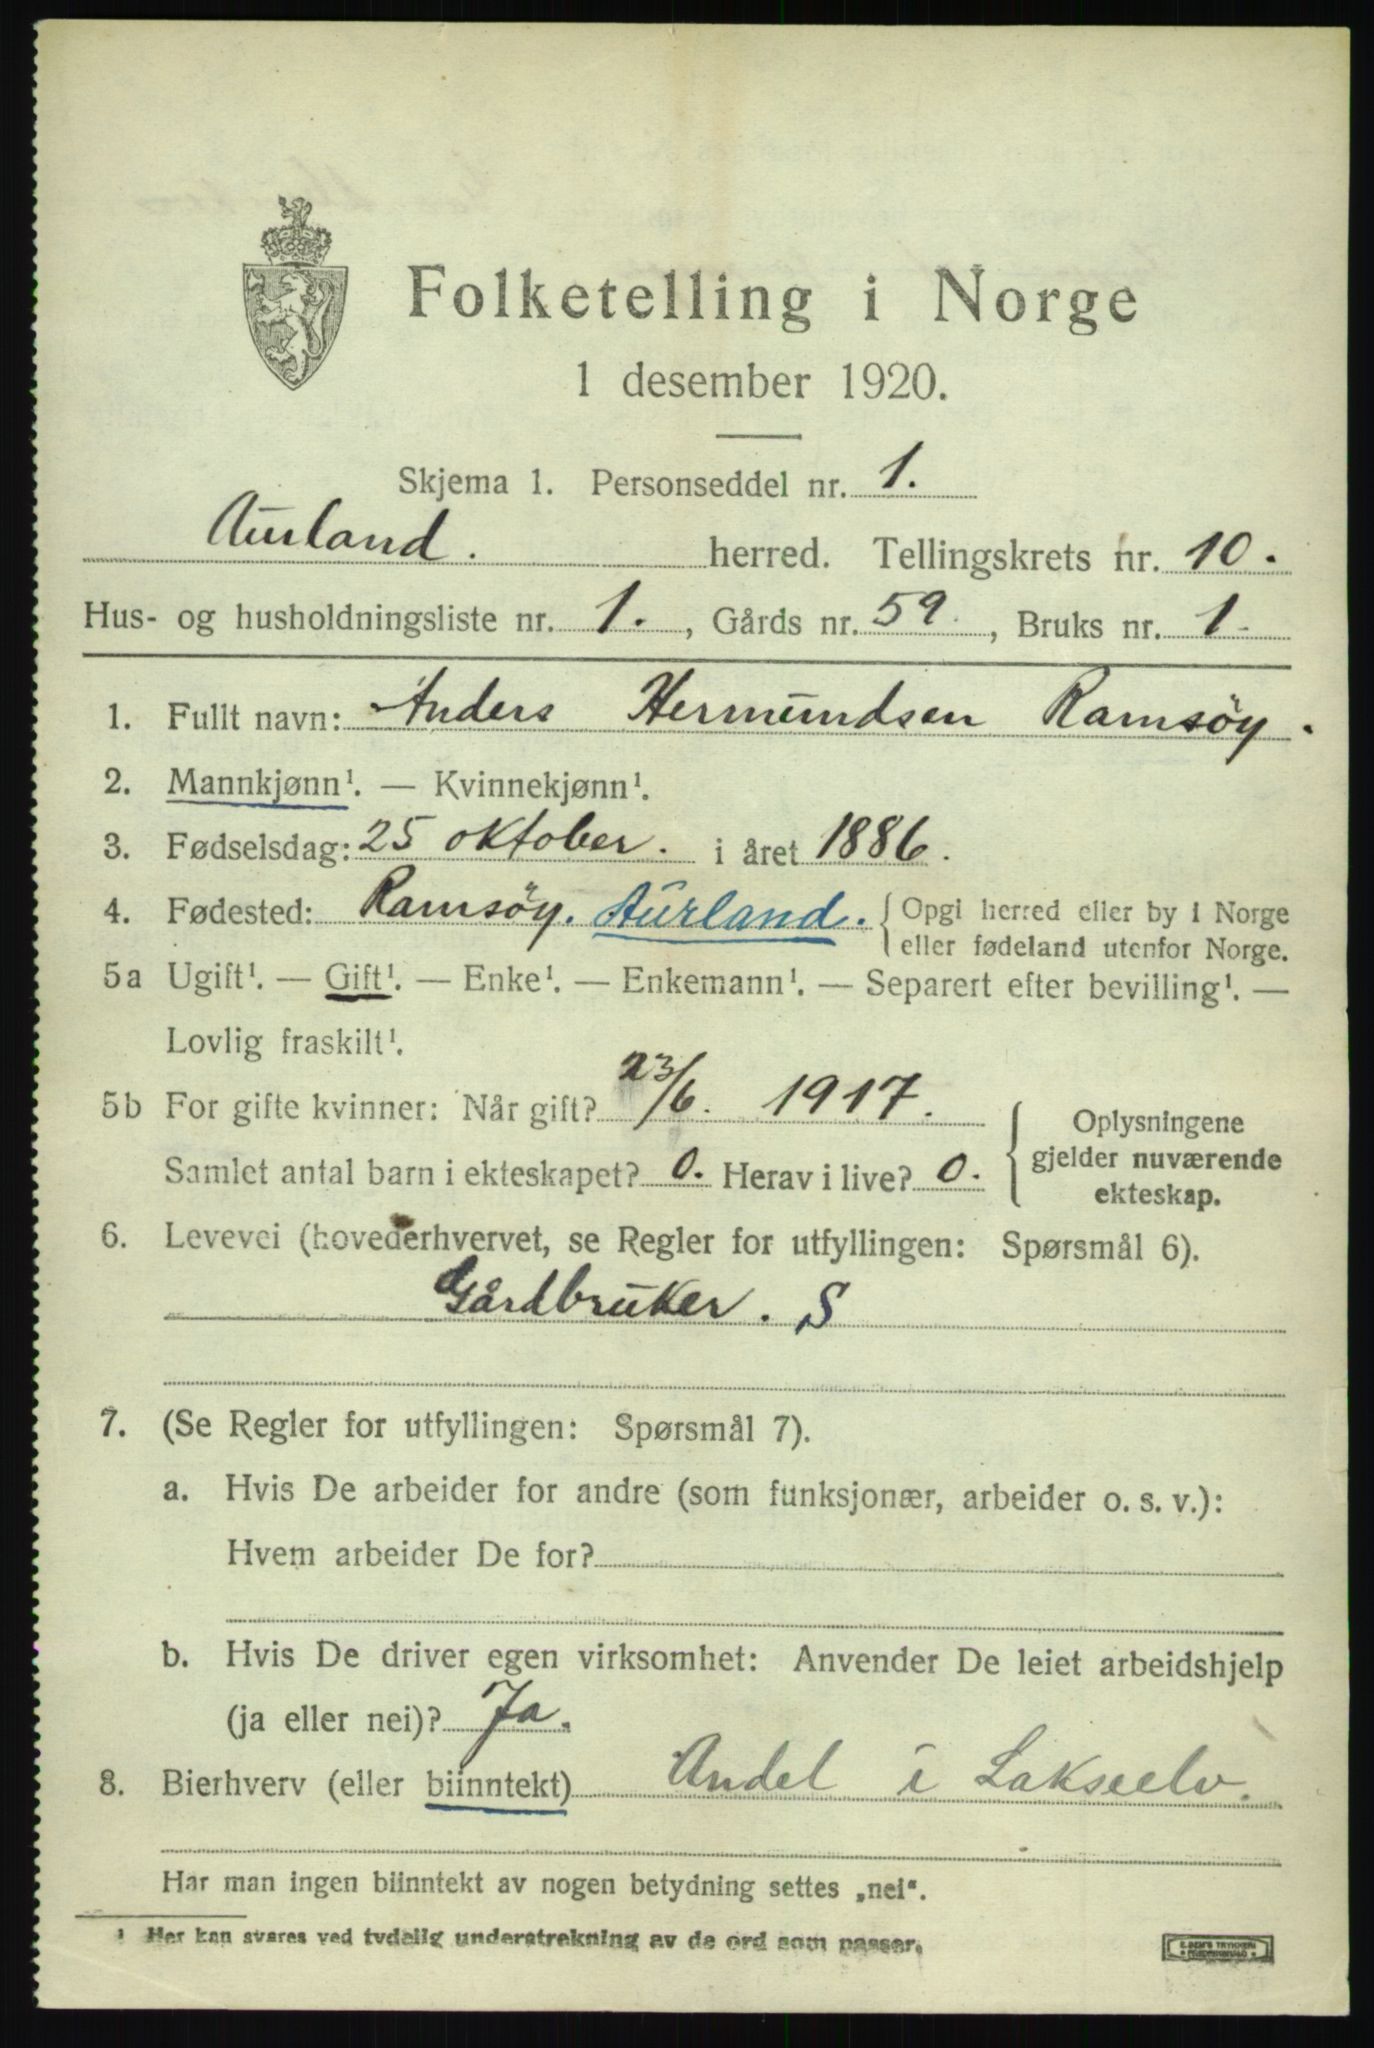 Folketelling i Norge
1 desember 1920.
Skjema 1. Personseddel nr. 1.
Aurland. herred. Tellingskrets nr. 10.
Hus- og husholdningsliste nr. 1., Gårds nr. 59., Bruks nr. 1.
1. Fullt navn: Anders Hermundsen Ramsöy.
2. Mannkjønn¹. — Kvinnekjønn¹.
3. Fødselsdag: 25 oktober. i året 1886.
4. Fødested: Ramsöy. Aurland. { Opgi herred eller by i Norge
eller fødeland utenfor Norge.
5a Ugift¹. — Gift¹. — Enke¹. — Enkemann¹. — Separert efter bevilling¹. —
Lovlig fraskilt¹.
5b For gifte kvinner: Når gift? 23/6. 1917.
Samlet antal barn i ekteskapet? 0. Herav i live? 0.
{ Oplysningene
gjelder nuværende
ekteskap.
6. Levevei (hovederhvervet, se Regler for utfyllingen: Spørsmål 6).
Gårdbruker. S
7. (Se Regler for utfyllingen: Spørsmål 7).
a. Hvis De arbeider for andre (som funksjonær, arbeider o. s. v.):
Hvem arbeider De for?
b. Hvis De driver egen virksomhet: Anvender De leiet arbeidshjelp
(ja eller nei)? Ja.
8. Bierhverv (eller biinntekt) Andel i Lakseelv.
Har man ingen biinntekt av nogen betydning settes „nei“.
¹ Her kan svares ved tydelig understrekning av de ord som passer.